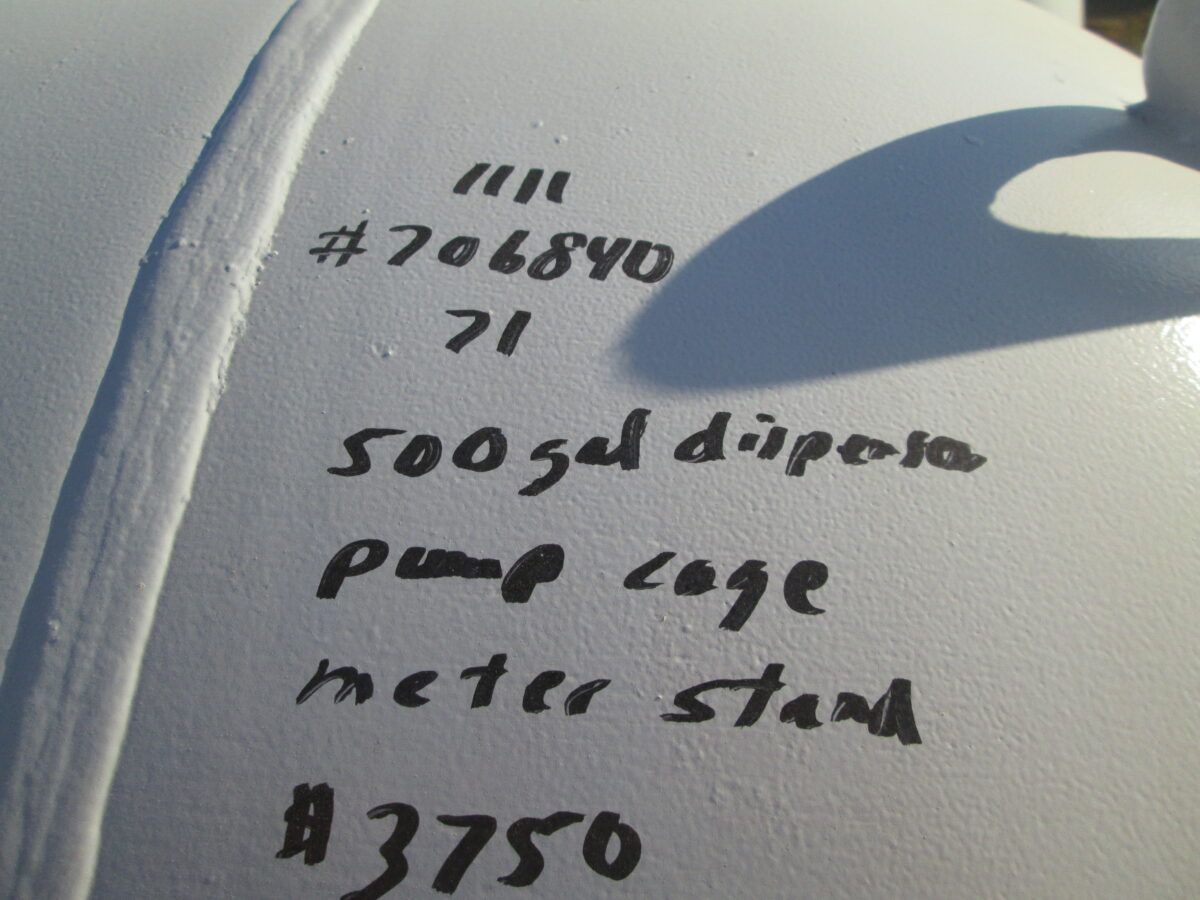 1111
#706840
71
500 gal dispenser
pump cage
meter stand
$3750